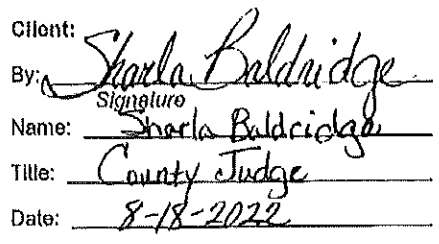 Client:
By: Sharla Baldridge
Signature
Name: Sharla Baldridge
Title: County Judge
Date: 8-18-2022